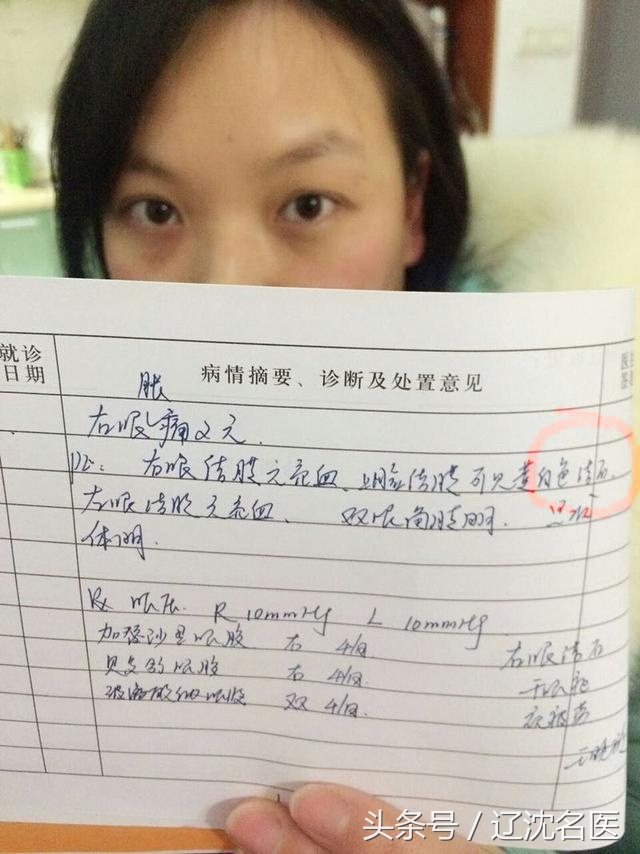 就诊
日期
病情摘要、诊断及处置意见
胀
右眼痛2天.
PE: 右眼结膜充血、上睑结膜可见黄白色结石,
左眼结膜充血、双眼角膜明.
体明.
Rx 眼压 R 10mmHg L 10mmHg
加替沙星眼 右 4/日
右眼结石
贝复舒眼 右 4/日.
干眼
玻璃酸钠眼 双 4/日.
头条号/辽沈名医